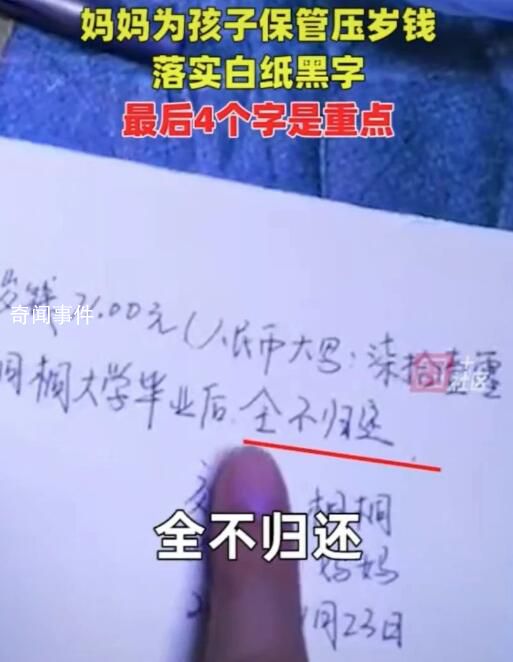 妈妈为孩子保管压岁钱
落实白纸黑字
最后4个字是重点
岁钱71.00元(人民币大写:柒拾壹零
奇闻事件
社区
桐大学毕业后,全不归还.
全不归还
桐桐
妈妈
月23日